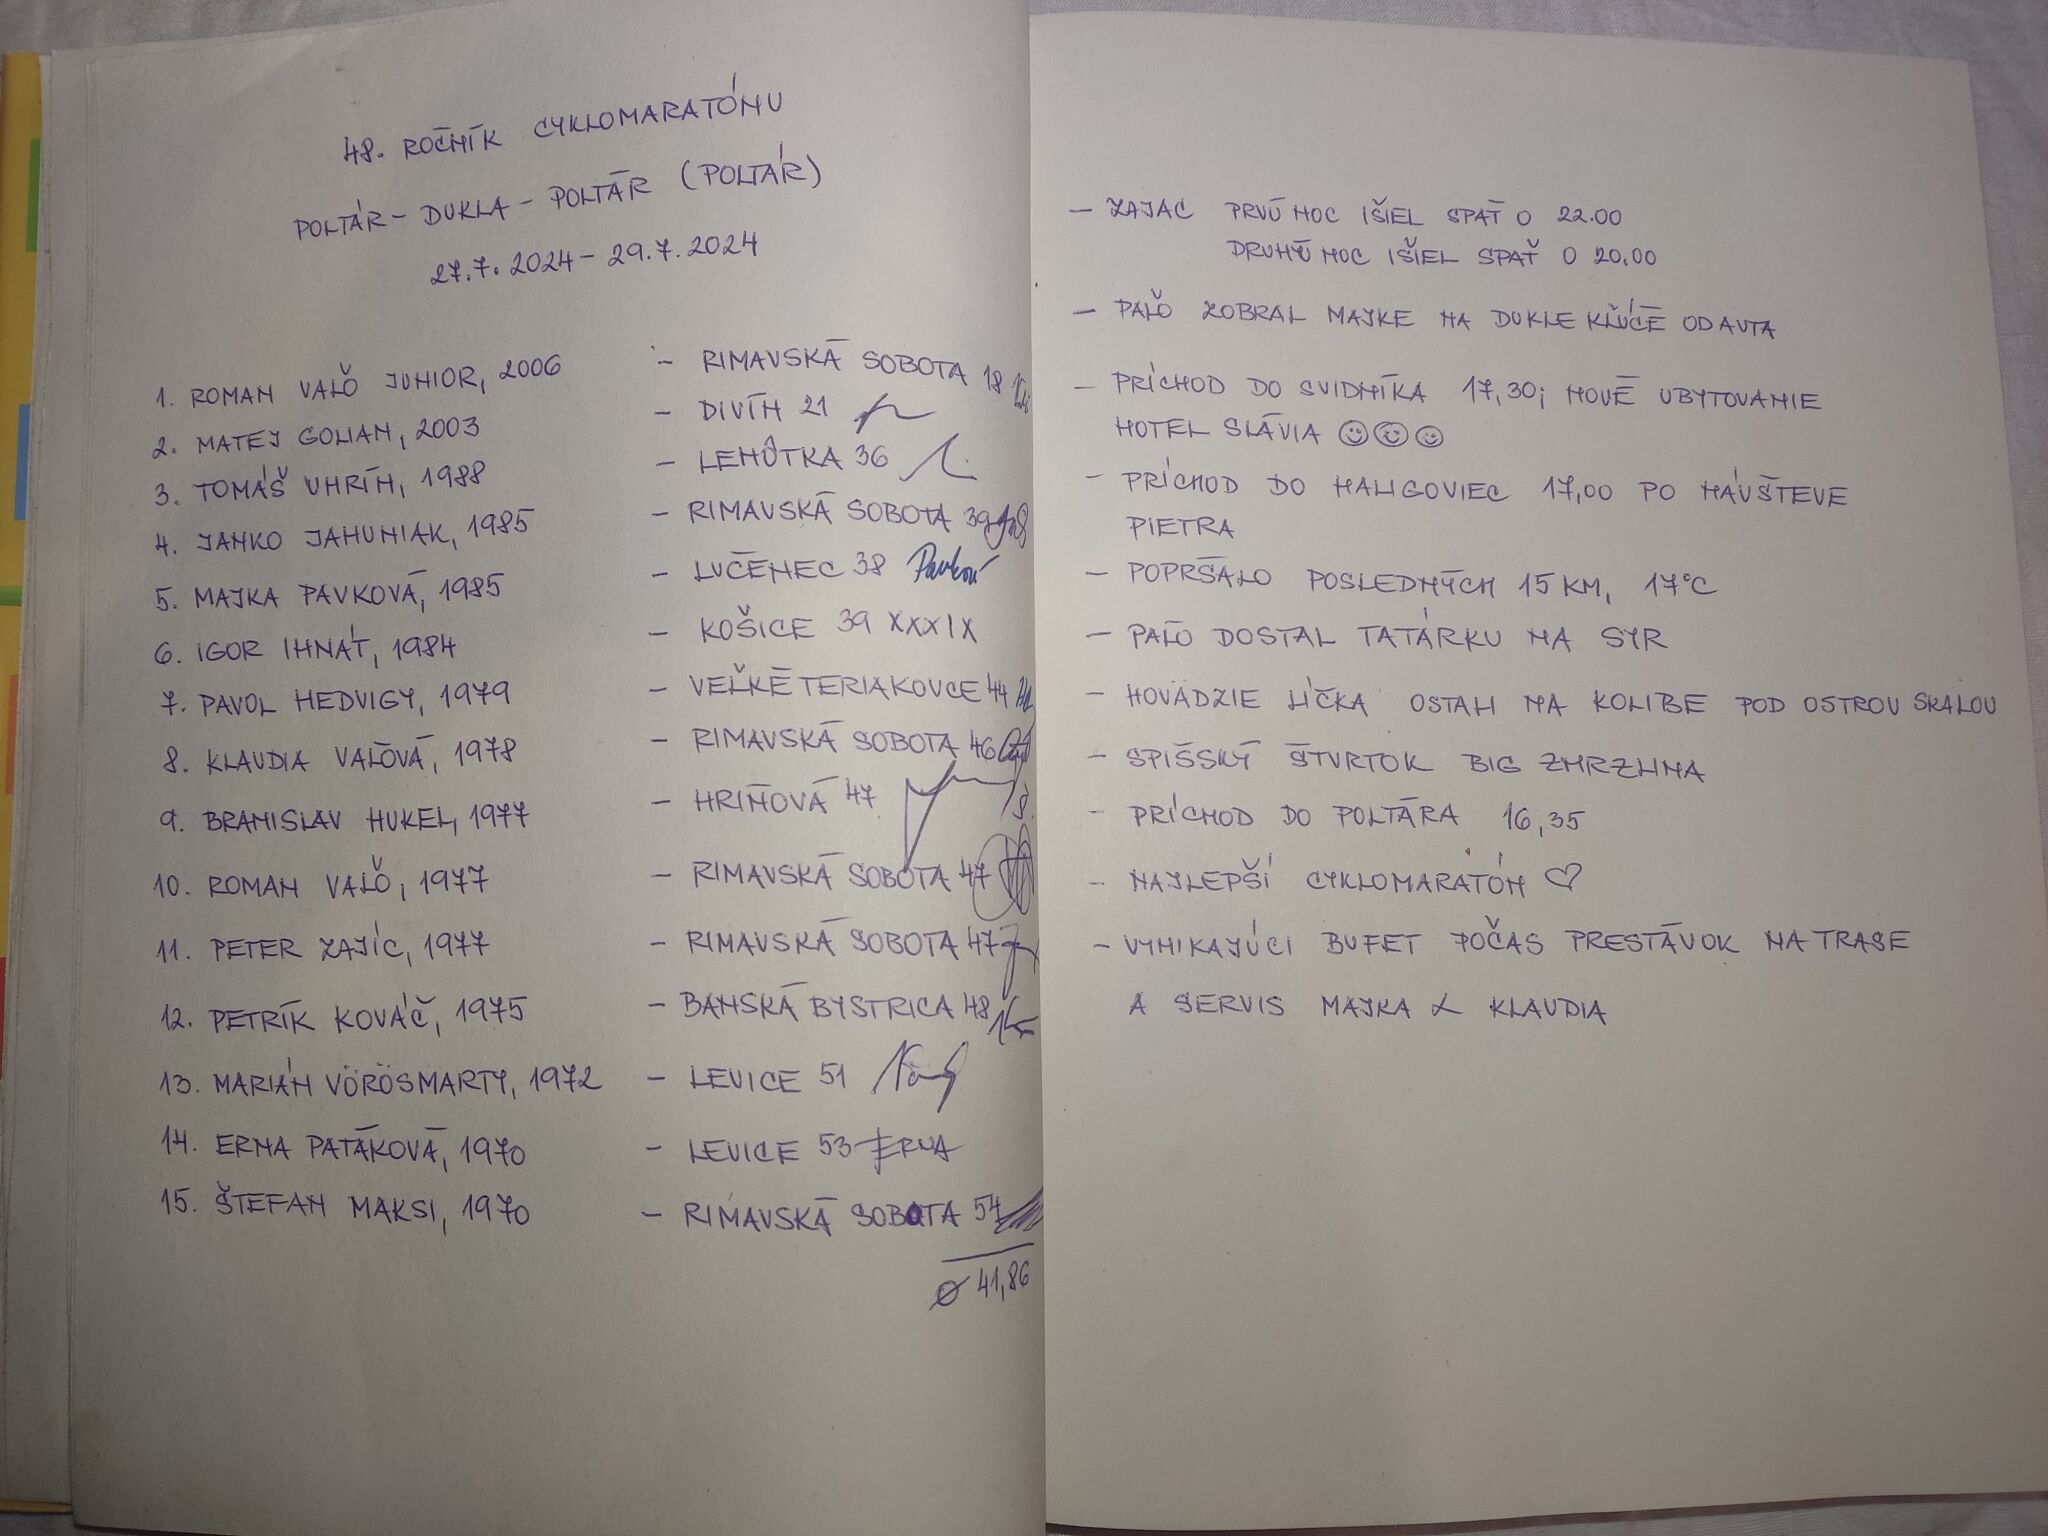 48. ROČNÍK CYKLOMARATÓNU
POLTÁR - DUKLA - POLTÁR (POLTÁR)
27.7.2024 - 29.7.2024
1. ROMAN VALO JUNIOR, 2006 - RIMAVSKÁ SOBOTA 18
2. MATEJ GOLIAN, 2003 - DIVÍN 21
3. TOMÁŠ UHRÍN, 1988 - LEHÔTKA 36
4. JANKO JAHUNIAK, 1985 - RIMAVSKÁ SOBOTA 39
5. MAJKA PAVKOVÁ, 1985 - LUČENEC 38 Pavková
6. IGOR IHNÁT, 1984 - KOŠICE 39 XXXIX
7. PAVOL HEDVIGY, 1979 - VEĽKÉ TERIAKOVCE 44
8. KLAUDIA VALOVÁ, 1978 - RIMAVSKÁ SOBOTA 46
9. BRANISLAV HUKEL, 1977 - HRIŇOVÁ 47
10. ROMAN VALO, 1977 - RIMAVSKÁ SOBOTA 47
11. PETER ZAJÍC, 1977 - RIMAVSKÁ SOBOTA 47
12. PETRÍK KOVÁČ, 1975 - BANSKÁ BYSTRICA 48
13. MARIÁN VÖRÖSMARTY, 1972 - LEVICE 51
14. ERNA PATÁKOVÁ, 1970 - LEVICE 53 ERNA
15. ŠTEFAN MAKSI, 1970 - RIMAVSKÁ SOBOTA 54
Ø 41,86
- ZAJAC PRVÚ NOC IŠIEL SPAŤ O 22.00
DRUHÚ NOC IŠIEL SPAŤ O 20.00
- PAĽO ZOBRAL MAJKE NA DUKLE KĽÚČE OD AUTA
- PRÍCHOD DO SVIDNÍKA 17,30; NOVÉ UBYTOVANIE
HOTEL SLÁVIA ☺☺☺
- PRÍCHOD DO HALIGOVIEC 17,00 PO NÁVŠTEVE
PIETRA
- POPRŠALO POSLEDNÝCH 15 KM, 17°C
- PAĽO DOSTAL TATÁRKU NA SYR
- HOVÄDZIE LÍČKA OSTALI NA KOLIBE POD OSTROU SKALOU
- SPIŠSKÝ ŠTVRTOK BIG ZMRZLINA
- PRÍCHOD DO POLTÁRA 16,35
- NAJLEPŠÍ CYKLOMARATÓN ♡
- VYNIKAJÚCI BUFET POČAS PRESTÁVOK NA TRASE
A SERVIS MAJKA & KLAUDIA